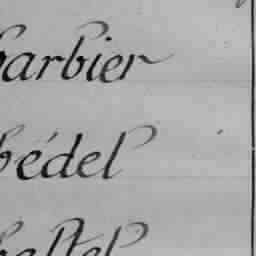 barbier
bédel